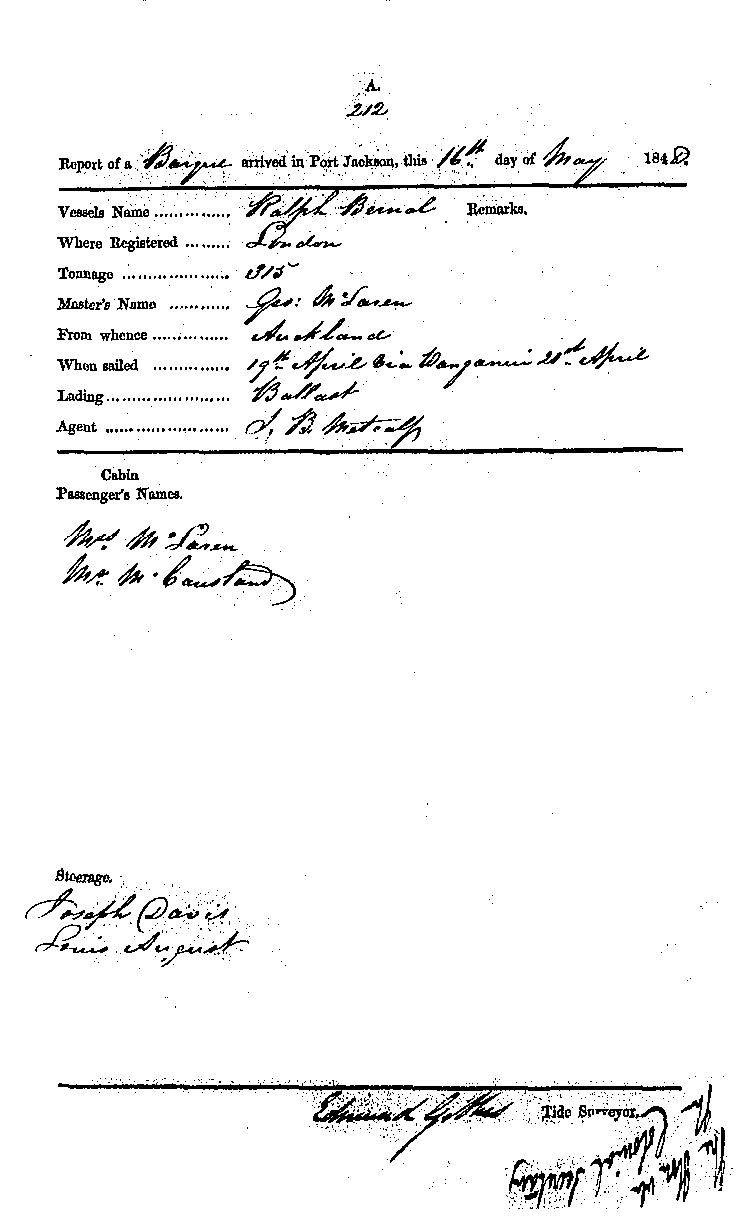 A.
212
Report of a Barque arrived in Port Jackson, this 16th day of May 1848.
Vessels Name ............... Ralph Bernal Remarks.
Where Registered ......... London
Tonnage .................... 315
Master's Name ............ Geo: McLaren
From whence ............... Auckland
When sailed ............... 19th April via Wanganui 21st April
Lading......................... Ballast
Agent ........................ J. B. Metcalf
Cabin
Passenger's Names.
Mrs. McLaren
Mr. McCausland
Steerage.
Joseph Davis
Louis August
Edmund Tide Surveyor.
The Hon. the
Colonial Secretary